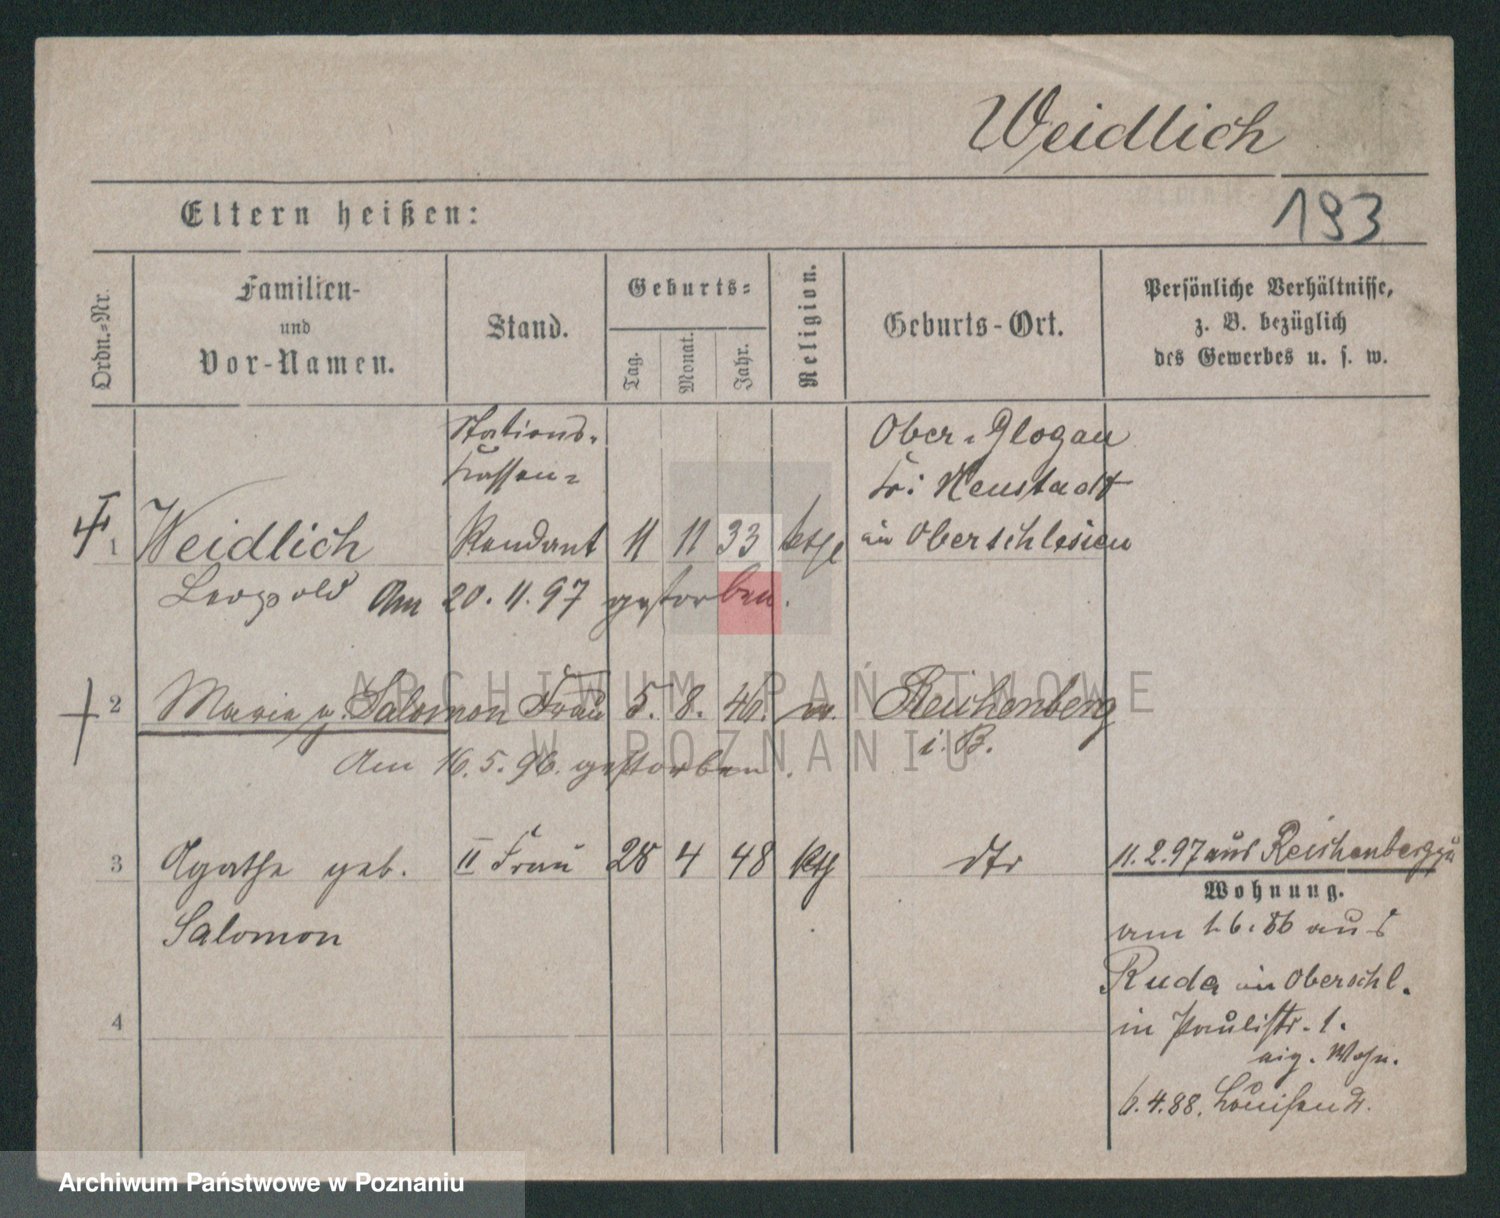 Weidlich
193
Eltern heißen:
Ordn.-Nr.
Familien-
und
Vor-Namen.
Stand.
Geburts-
Tag.
Monat.
Jahr.
Religion.
Geburts-Ort.
Persönliche Verhältnisse,
z. B. bezüglich
des Gewerbes u. s. w.
Stations-
Kassen-
Ober-Glogau
bei Neustadt
1 Weidlich Rendant 11 11 33 kath in Oberschlesien
Leopold Am 20. 11. 97 gestorben.
2 Maria g. Salomon Frau 5. 8. 46. Reichenberg
i. B.
Am 16. 5. 96. gestorben.
3 Agathe geb. II Frau 28 4 48 kth dto 11. 2. 97 aus Reichenberg zu
Salomon
Wohnung.
am 1. 6. 86 aus
Ruda in Oberschl.
in Paulistr. 1.
eig. Wohn.
6. 4. 88. Louisen 2.
4
ARCHIWUM PAŃSTWOWE
W POZNANIU
Archiwum Państwowe w Poznaniu